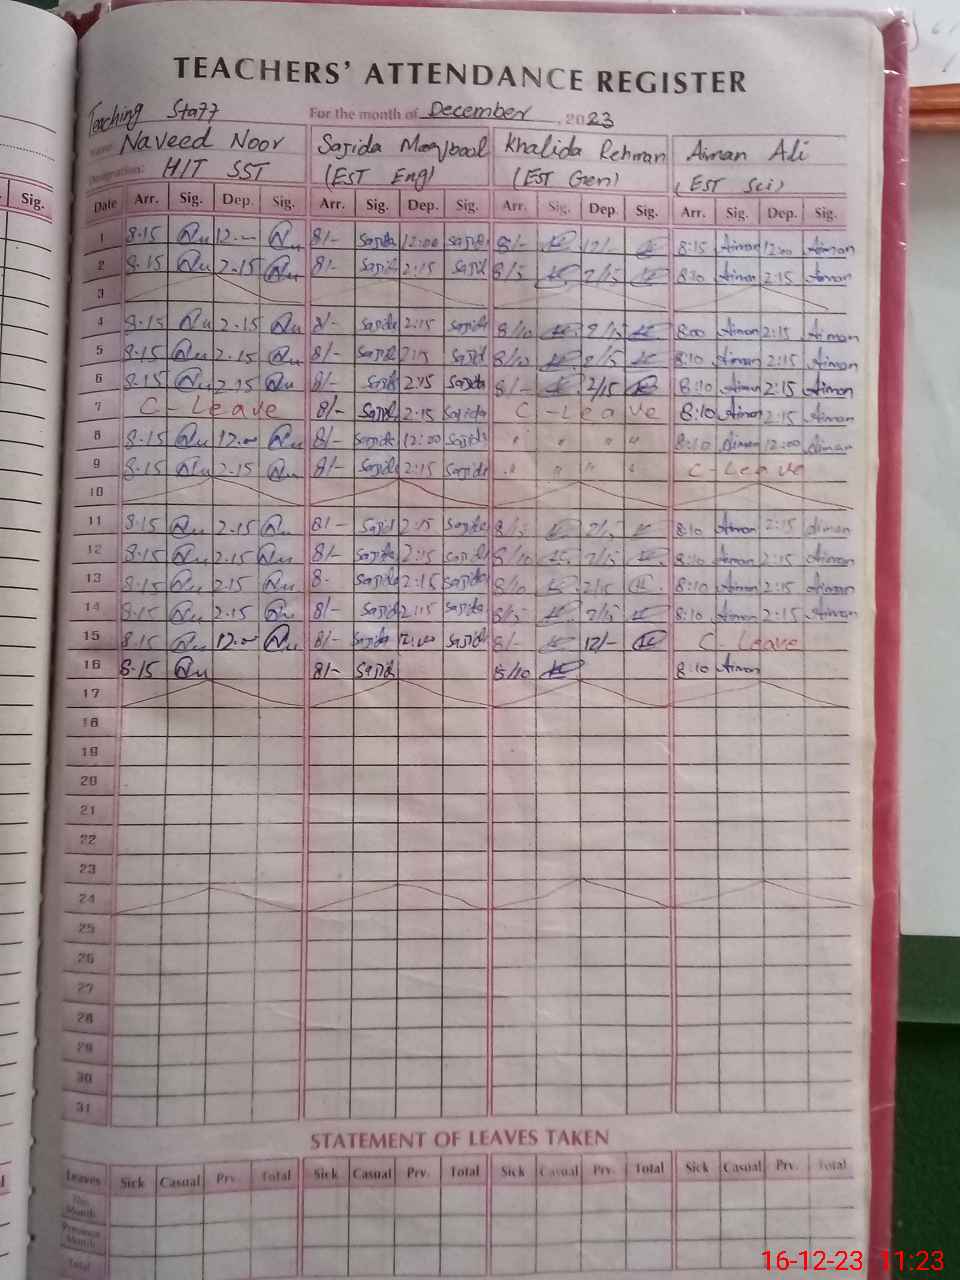 TEACHERS' ATTENDANCE REGISTER
Teaching Staff For the month of December , 2023
Name: Naveed Noor Sajida Maqbool Khalida Rehman Aiman Ali
Designation: H/T SST (EST Eng) (EST Gen) (EST Sci)
Sig. Date Arr. Sig. Dep. Sig. Arr. Sig. Dep. Sig. Arr. Sig. Dep. Sig. Arr. Sig. Dep. Sig.
1 8-15 12.— 8/- Sajida 12:00 Sajida 8/- 12/- 8:15 Aiman 12:00 Aiman
2 8.15 2.15 8/- Sajid 2:15 Sajid 8/5 2/15 8:10 Aiman 2:15 Aiman
3
4 8-15 2.15 8/- Sajida 2:15 Sajida 8/10 2/15 8:00 Aiman 2:15 Aiman
5 8.15 2.15 8/- Sajid 2:15 Sajid 8/10 2/15 8:10 Aiman 2:15 Aiman
6 8.15 2.15 8/- Sajida 2:15 Sajida 8/- 2/15 8:10 Aiman 2:15 Aiman
7 C - Leave 8/- Sajid 2:15 Sajida C - Leave 8:10 Aiman 2:15 Aiman
8 8-15 12.00 8/- Sajida 12:00 Sajida " " " " 8:10 Aiman 12:00 Aiman
9 8-15 2.15 8/- Sajida 2:15 Sajida " " " " C - Leave
10
11 8-15 2.15 8/- Sajid 2:15 Sajida 8/5 2/15 8:10 Aiman 2:15 Aiman
12 8-15 2.15 8/- Sajida 2:15 Sajida 8/10 2/15 8:10 Aiman 2:15 Aiman
13 8-15 2.15 8- Sajida 2:15 Sajida 8/10 2/15 8:10 Aiman 2:15 Aiman
14 8-15 2.15 8/- Sajida 2:15 Sajida 8/5 2/15 8:10 Aiman 2:15 Aiman
15 8.15 12.00 8/- Sajida 12:00 Sajida 8/- 12/- C - Leave
16 8-15 8/- Sajid 8/10 8:10 Aiman
17
18
19
20
21
22
23
24
25
26
27
28
29
30
31
STATEMENT OF LEAVES TAKEN
Leaves Sick Casual Prv. Total Sick Casual Prv. Total Sick Casual Prv. Total Sick Casual Prv. Total
This Month
Previous Month
Total
16-12-23 11:23